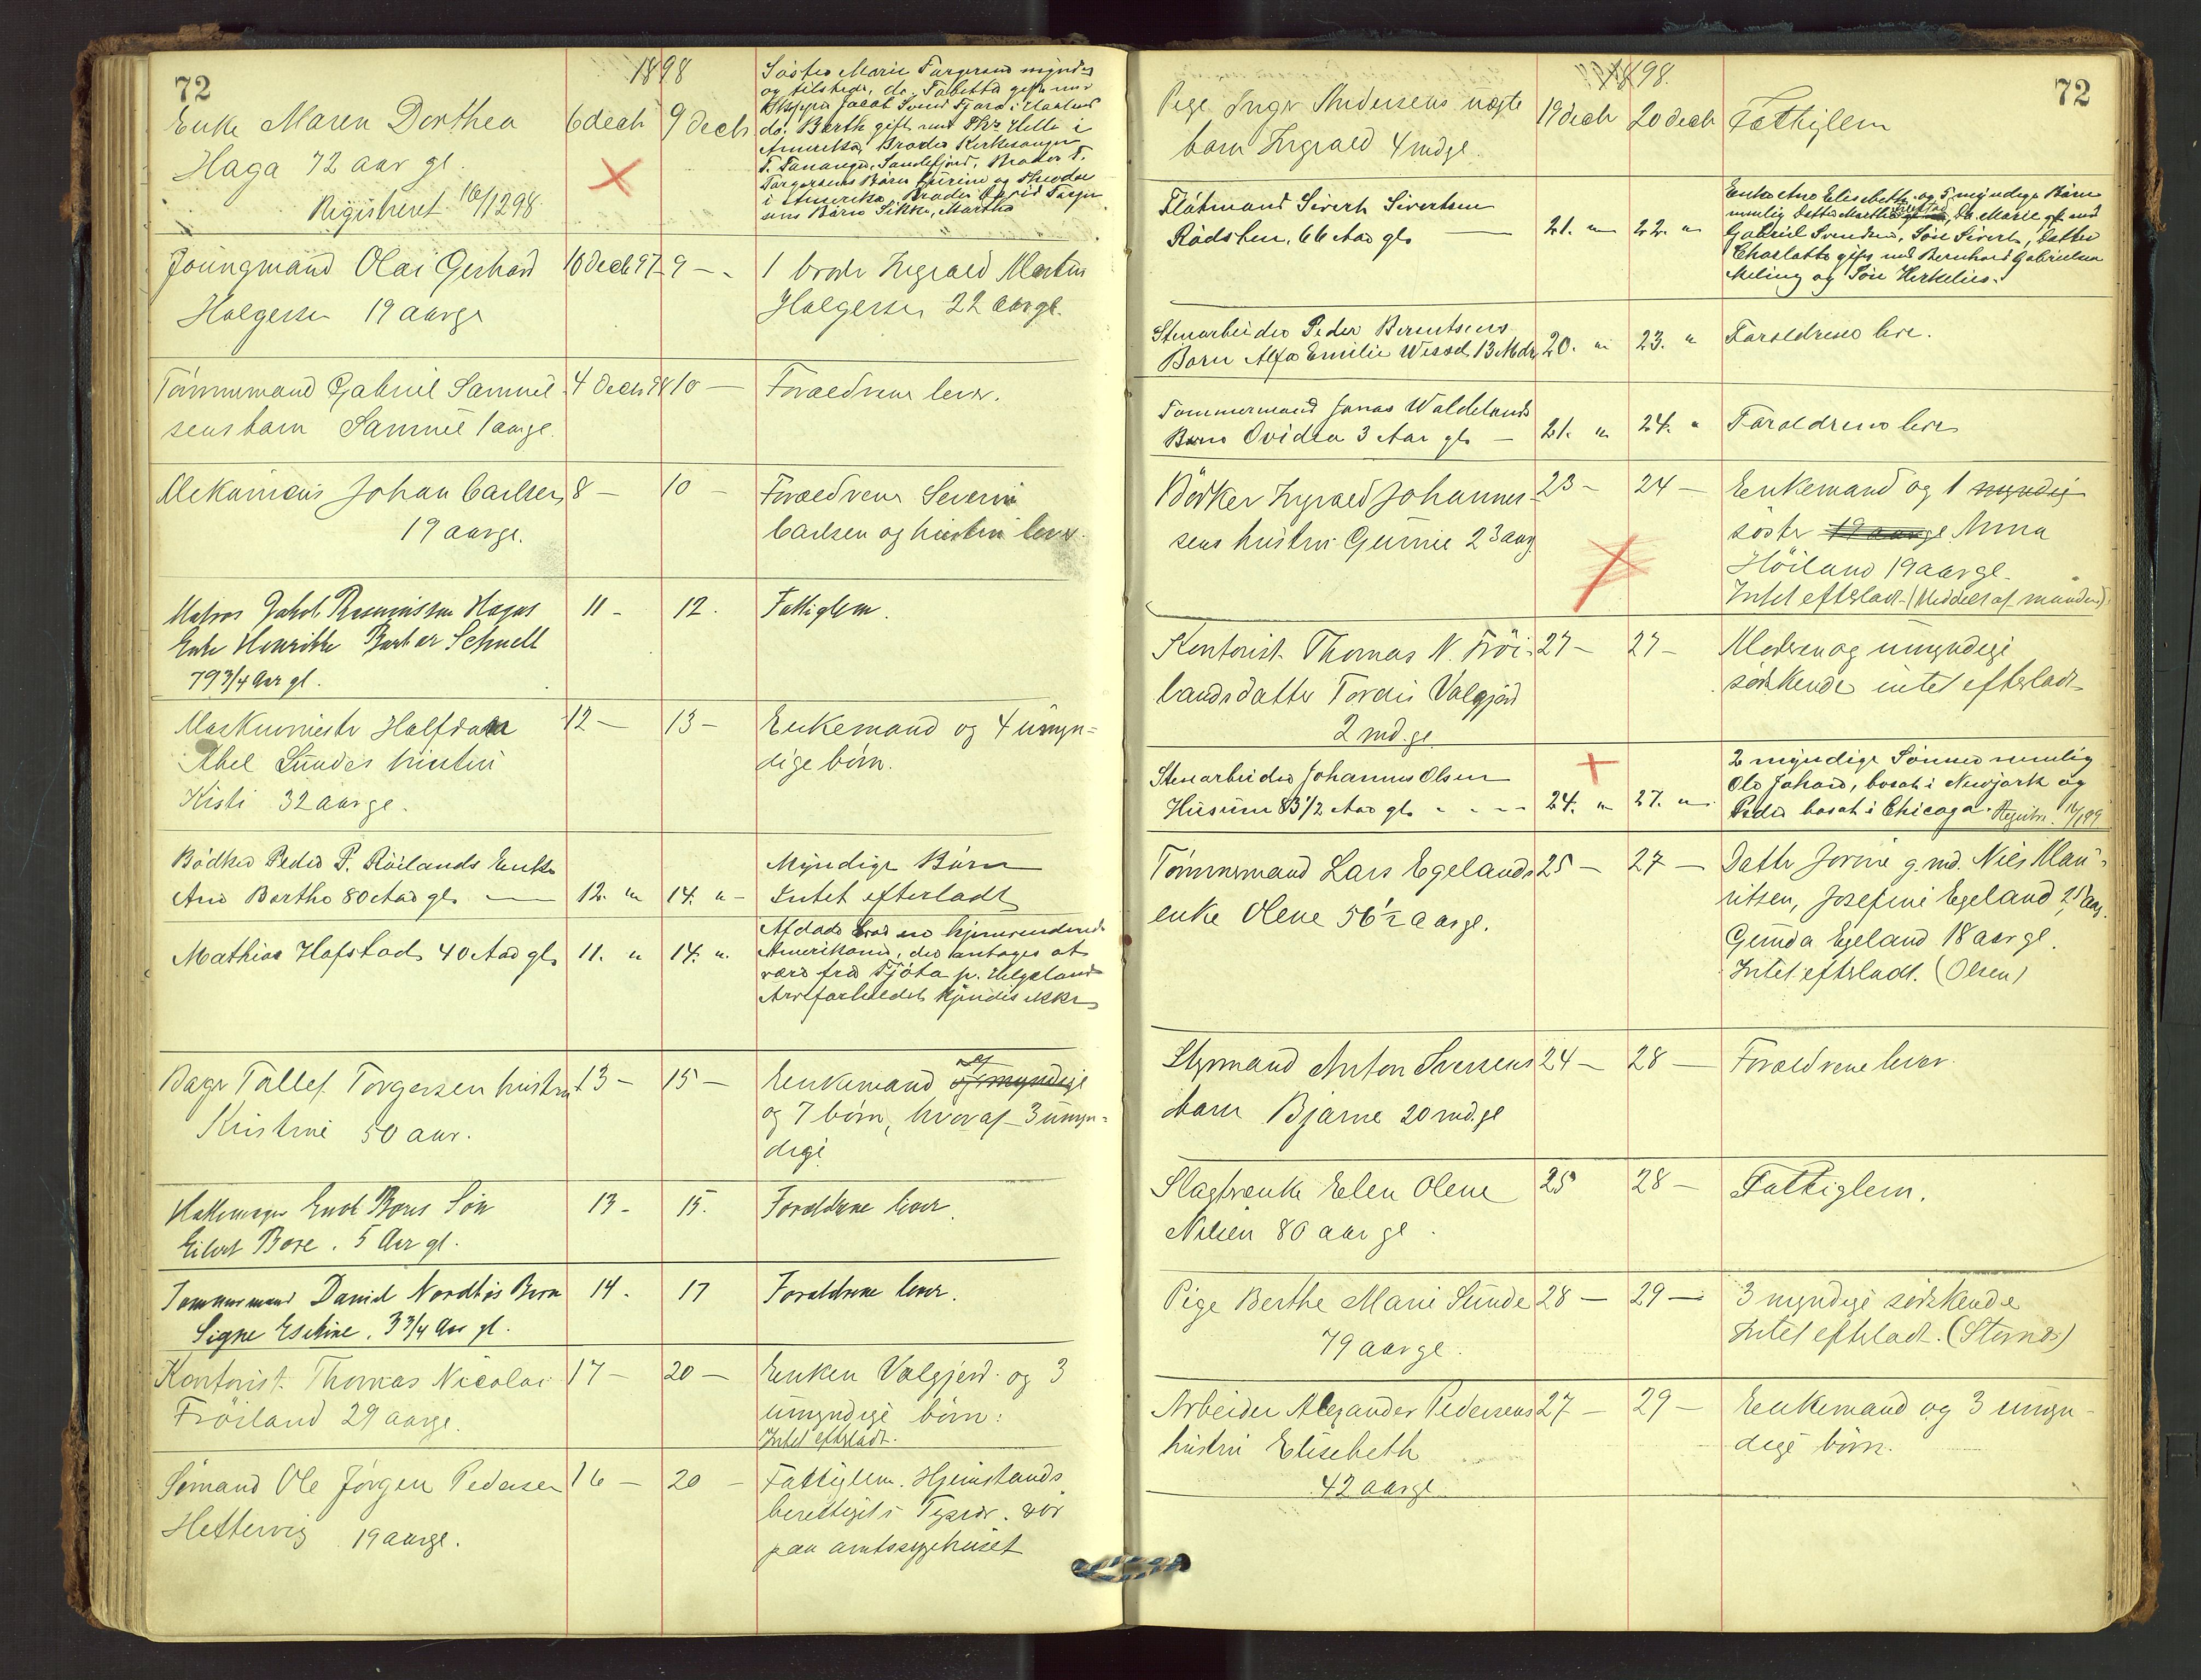 72
1898
Enke Maren Dorthea
Haga 72 aar gl.
Registreret 16/12 98
6 decb
9 decb
Søster Marie Torgersen myndig
og tilstede, do. Tabetta gift med
Skipper Jacob
do. Berthe gift med Ths. Helle i
Amerika, Broder Kirkesanger
T. Tananger, Sandefjord, Broder T.
Torgersens Børn Gurine og Theodor
i Amerika, Broder
Børn Sikke, Martha
Joungmand Olai Gerhard
Holgersen 19 aarge
10 decb 97
9 –
1 broder Ingvald Martin
Holgersen 22 aar gl.
Tömmermand Gabriel Samuel-
sens barn Samuel 1 aarge.
4 decb 98
10 –
Forældrene lever.
Mekanicus Johan Carlsen
19 aarge.
8 –
10 –
Forældrene Severin
Carlsen og hustru lever.
Matros Jakob Rasmussen Hagas
Enke Henrikke Barbar Schnell
79 3/4 Aar gl.
11 –
12.
Fattiglem.
Maskinmester Halfdan
Abel Sundes hustru
Kisti 32 aarge.
12 –
13 –
Enkemand og 4 umyn=
dige børn.
Bødker Peder P. Röilands Enke
Ane Bertha 80 Aar gl.
12. "
14. " –
Myndige Børn
Intet efterladt
Mathias Hofstad 40 Aar gl.
11. "
14. "
Afdøde var en hjemvendende
Amerikaner, der antages at
være fra Tjöta p. Helgeland
Arveforholdet kjendes ikke
Bager Tollef Torgersen hustru
Kristine 50 aar.
13 –
15 –
Enkemand og myndige
og 7 børn, hvoraf 3 umyn=
dige
Hattemager Enok Bores Søn
Eilert Bore. 5 Aar gl.
13 –
15.
Forældrene lever.
Tømmermand David Nordbøs Barn
Signe Eskine. 3 3/4 Aar gl.
14.
17
Forældrene lever.
Kontorist Thomas Nicolai
Fröiland 29 aarge.
17 –
20 –
Enken Valgjerd og 3
umyndige børn:
Intet efterladt.
Sömand Ole Jörgen Pedersen
Hettervig 19 aarge.
16 –
20 –
Fattiglem. Hjemstands
berettiget i Tysvær. var
paa amtssygehuset
72
1898.
Pige Inger Andersens uægte
barn Ingvald 4 mdge.
19 decb
20 decb
Fattiglem
Flåtmand Sivert Sivertsen
Rödsten, 66 Aar gl.
21. "
22. "
Enke Ane Elisabeth og 5 myndige Børn
nemlig datter Martha , do. Marie gift med
Gabriel Svendsen, Søn Sivert, Datter
Charlotte gift med Bernhard Gabrielsen
Meling og Søn Herkelius.
Stenarbeider Peder Berentsens
Barn Alfa Emilie Wessel 13 Mdr
20. "
23. "
Forældrene leve.
Tømmermand Jonas Waldelands
Barn Ovidia 3 Aar gl. –
21. "
24. "
Forældrene leve
Bödker Ingvald Johannes-
sens hustru Gurine 23 aarg
23 –
24 –
Enkemand og 1 myndig
søster 19 aarge Anna
Höiland 19 aar gl.
Intet efterladt (Meddelt af manden)
Kontorist Thomas N. Fröi-
lands datter Tordis Valgjerd
2 md. gl.
27 –
27 –
Moderen og umyndige
sødskende intet efterladt
Stenarbeider Johannes Olsen
Husum 83 1/2 Aar gl.
24. "
27. "
2 myndige Sønner nemlig
Ole Johan, bosat i Newjork og
Peder bosat i Chicago.
Tömmermand Lars Egelands
enke Olene 56 1/2 aarge.
25 –
27 –
Datter Jorine g. md. Niels Mau-
ritsen, Josefine Egeland 21 aarg.
Gunda Egeland 18 aar gl.
Intet efterladt. (Olsen)
Styrmand Anton Iversens
barn Bjarne 20 md. gl
24 –
28 –
Forældrene lever.
Slagterenke Elen Olene
Nilsen 80 aar gl.
25
28 –
Fattiglem.
Pige Berthe Marie Sunde
79 aar gl.
28 –
29 –
3 myndige sødskende
Intet efterladt.
Arbeider Alexander Pedersens
hustru Elisebeth
42 aarge
27 –
29 –
Enkemand og 3 umyn-
dige børn.